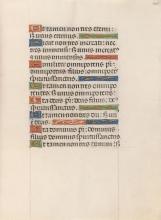 Et tamen non tres eterni:
sed unus eternus.
Sicut non tres increati: nec
tres immensi: sed unus increa
omnipotens pr: om
nipotens filius: omnipotens
spiritussanctus.
Et tamen non tres omnipoten
tes: sed unus omnipotens.
Ita deus pr: deus filius: deus
spiritussanctus.
Et tamen non tres dii: sed unus
est deus.
Ita dominus pr: dominus
filius: dominus spiritussanctus.
Et tamen non tres domini: